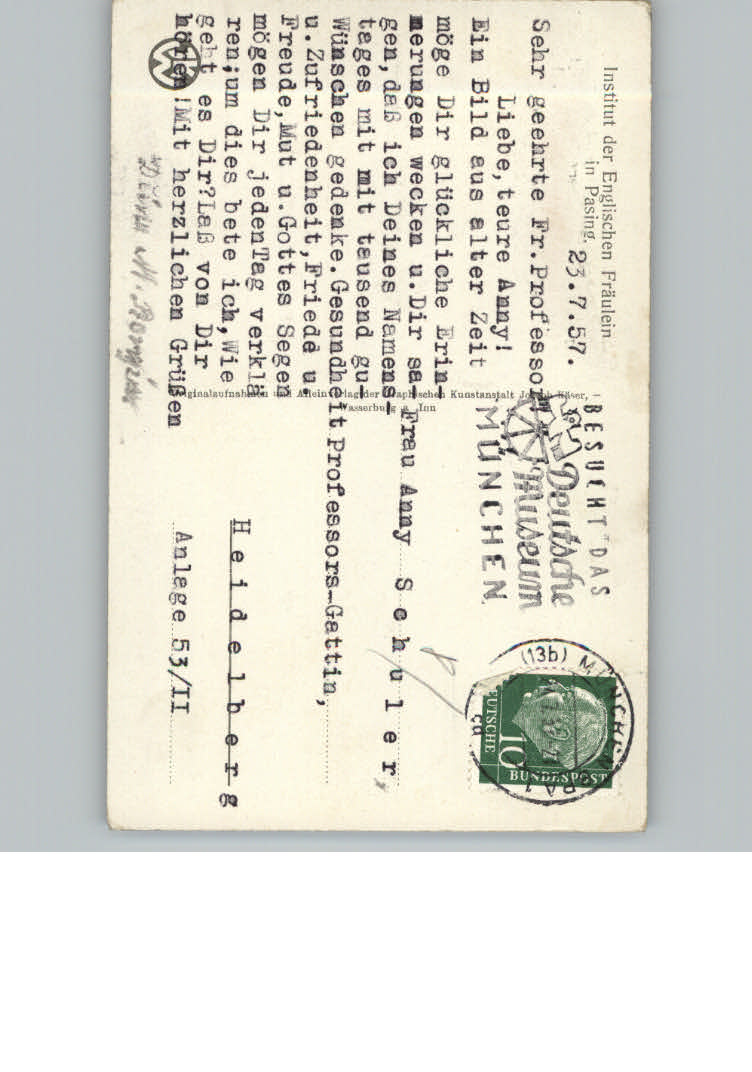 Institut der Englischen Fräulein
in Pasing.
23.7.57.
Sehr geehrte Fr.Professor
Liebe,teure Anny!
Ein Bild aus alter Zeit
möge Dir glückliche Erin_
nerungen wecken u.Dir sa_
gen,daß ich Deines Namens_
tages mit mit tausend gu_
Wünschen gedenke.Gesundheit
u.Zufriedenheit,Friede u.
Freude,Mut u.Gottes Segen
mögen Dir jedenTag verklä
ren;um dies bete ich,Wie
geht es Dir?Laß von Dir
hören!Mit herzlichen Grüßen
Deine M.
Originalaufnahmen und Alleinverlag der Graphischen Kunstanstalt Joseph Käser,
Wasserburg a. Inn
BESUCHT DAS
Deutsche
Museum
MÜNCHEN
(13b) MÜNCHEN
10
DEUTSCHE
BUNDESPOST
Frau Anny Schuler
Professors-Gattin,
Heidelberg
Anlage 53/II